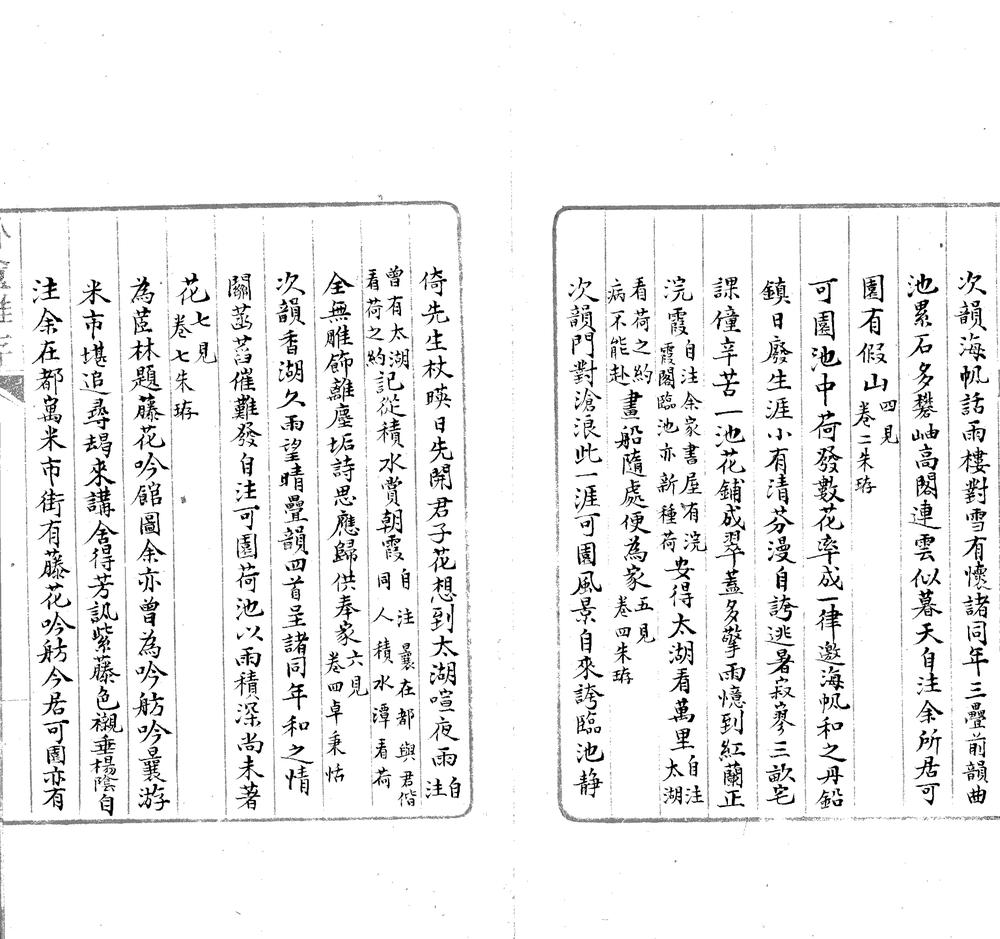 次韻海帆話雨樓對雪有懷諸同年三疊前韻曲
池累石多礬岫高閣連雲似暮天自注余所居可
園有假山四見卷二朱珔
可園池中荷發數花率成一律邀海帆和之丹鉛
鎮日廢生涯小有清芬漫自誇逃暑寂寥三畝宅
課僮辛苦一池花鋪成翠蓋多擎雨憶到紅蘭正
浣霞自注余家書屋有浣霞閣臨池亦新種荷安得太湖看萬里自注太湖
看荷之約病不能赴畫船隨處便為家五見卷四朱珔
次韻門對滄浪此一涯可園風景自來誇臨池静
倚先生杖映日先開君子花想到太湖喧夜雨自注
曾有太湖看荷之約記從積水賞朝霞自注曩在都與君偕同人積水潭看荷
全無雕飾離塵垢詩思應歸供奉家六見卷四卓秉恬
次韻香湖久雨望晴疊韻四首呈諸同年和之情
關菡萏催難發自注可園荷池以雨積深尚未著
花七見卷七朱珔
為茝林題藤花吟館圖余亦曾為吟舫吟曩游
米市堪追尋朅來講舍得芳訊紫藤色襯垂楊陰自
注余在都寓米市街有藤花吟舫今居可園亦有